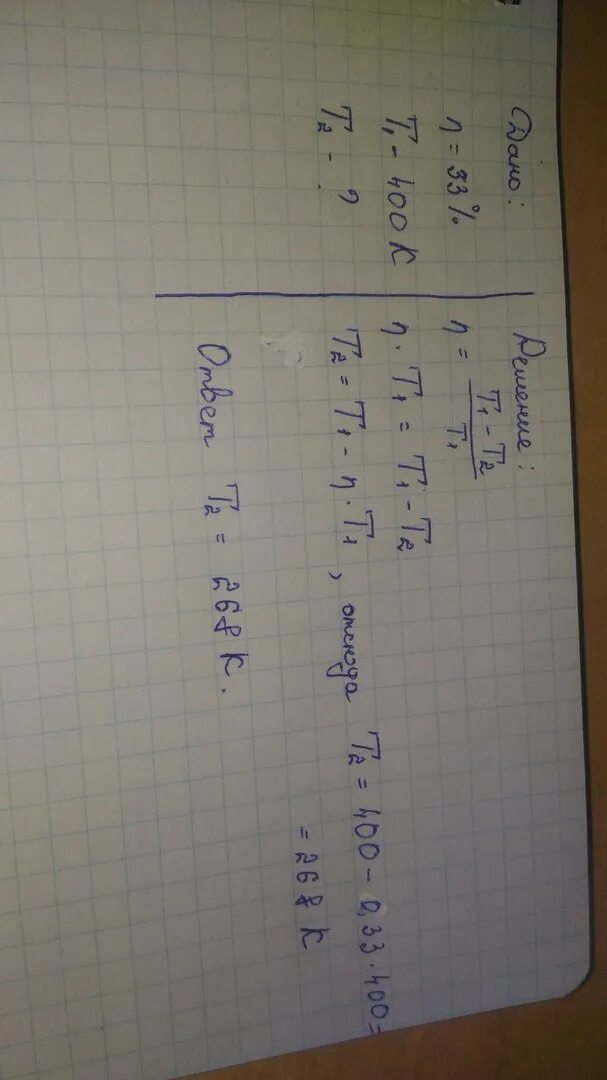 Дано:
η = 33%
T₁ - 400 K
T₂ - ?
Решение:
η = (T₁ - T₂) / T₁
η · T₁ = T₁ - T₂
T₂ = T₁ - η · T₁ , отсюда T₂ = 400 - 0,33 · 400 =
= 268 K
Ответ T₂ = 268 K.